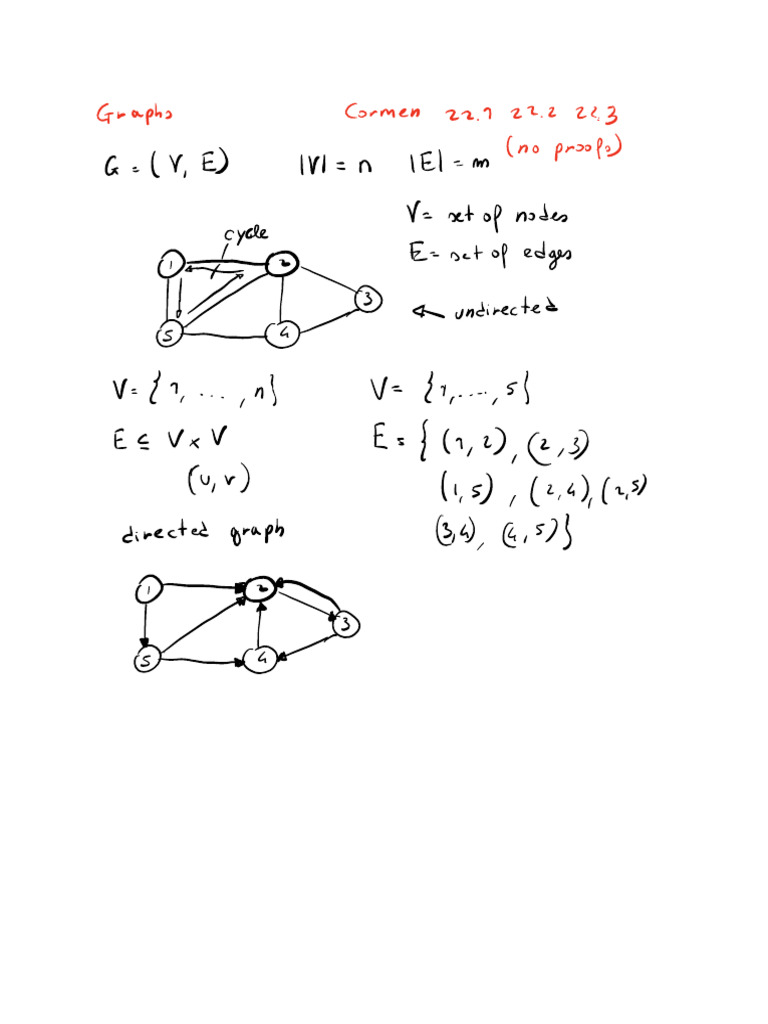 Graphs Cormen 22.1 22.2 22.3
(no proofs)
G = (V, E) |V| = n |E| = m
V = set of nodes
E = set of edges
cycle
1 2
3
5 4
undirected
V = {1, ..., n} V = {1, ..., 5}
E ⊆ V × V E = { (1, 2), (2, 3)
(u, v) (1, 5), (2, 4), (2, 5)
(3, 4), (4, 5)}
directed graph
1 2
3
5 4